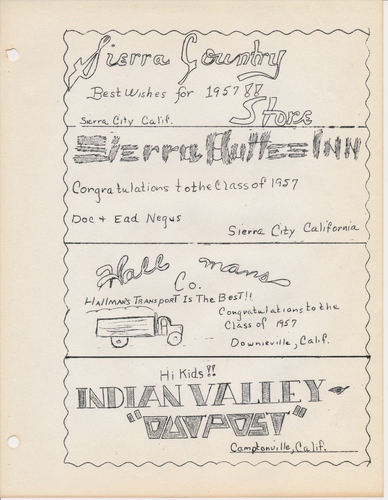 Sierra Country
Best Wishes for 1957!!
Store
Sierra City Calif.
Sierra Buttes Inn
Congratulations to the Class of 1957
Doc + Ead Negus
Sierra City California
Hall mans
Co.
Hallman's Transport Is The Best!!
Congratulations to the
Class of 1957
Downieville, Calif.
Hi Kids!!
INDIAN VALLEY
"OUTPOST"
Camptonville, Calif.